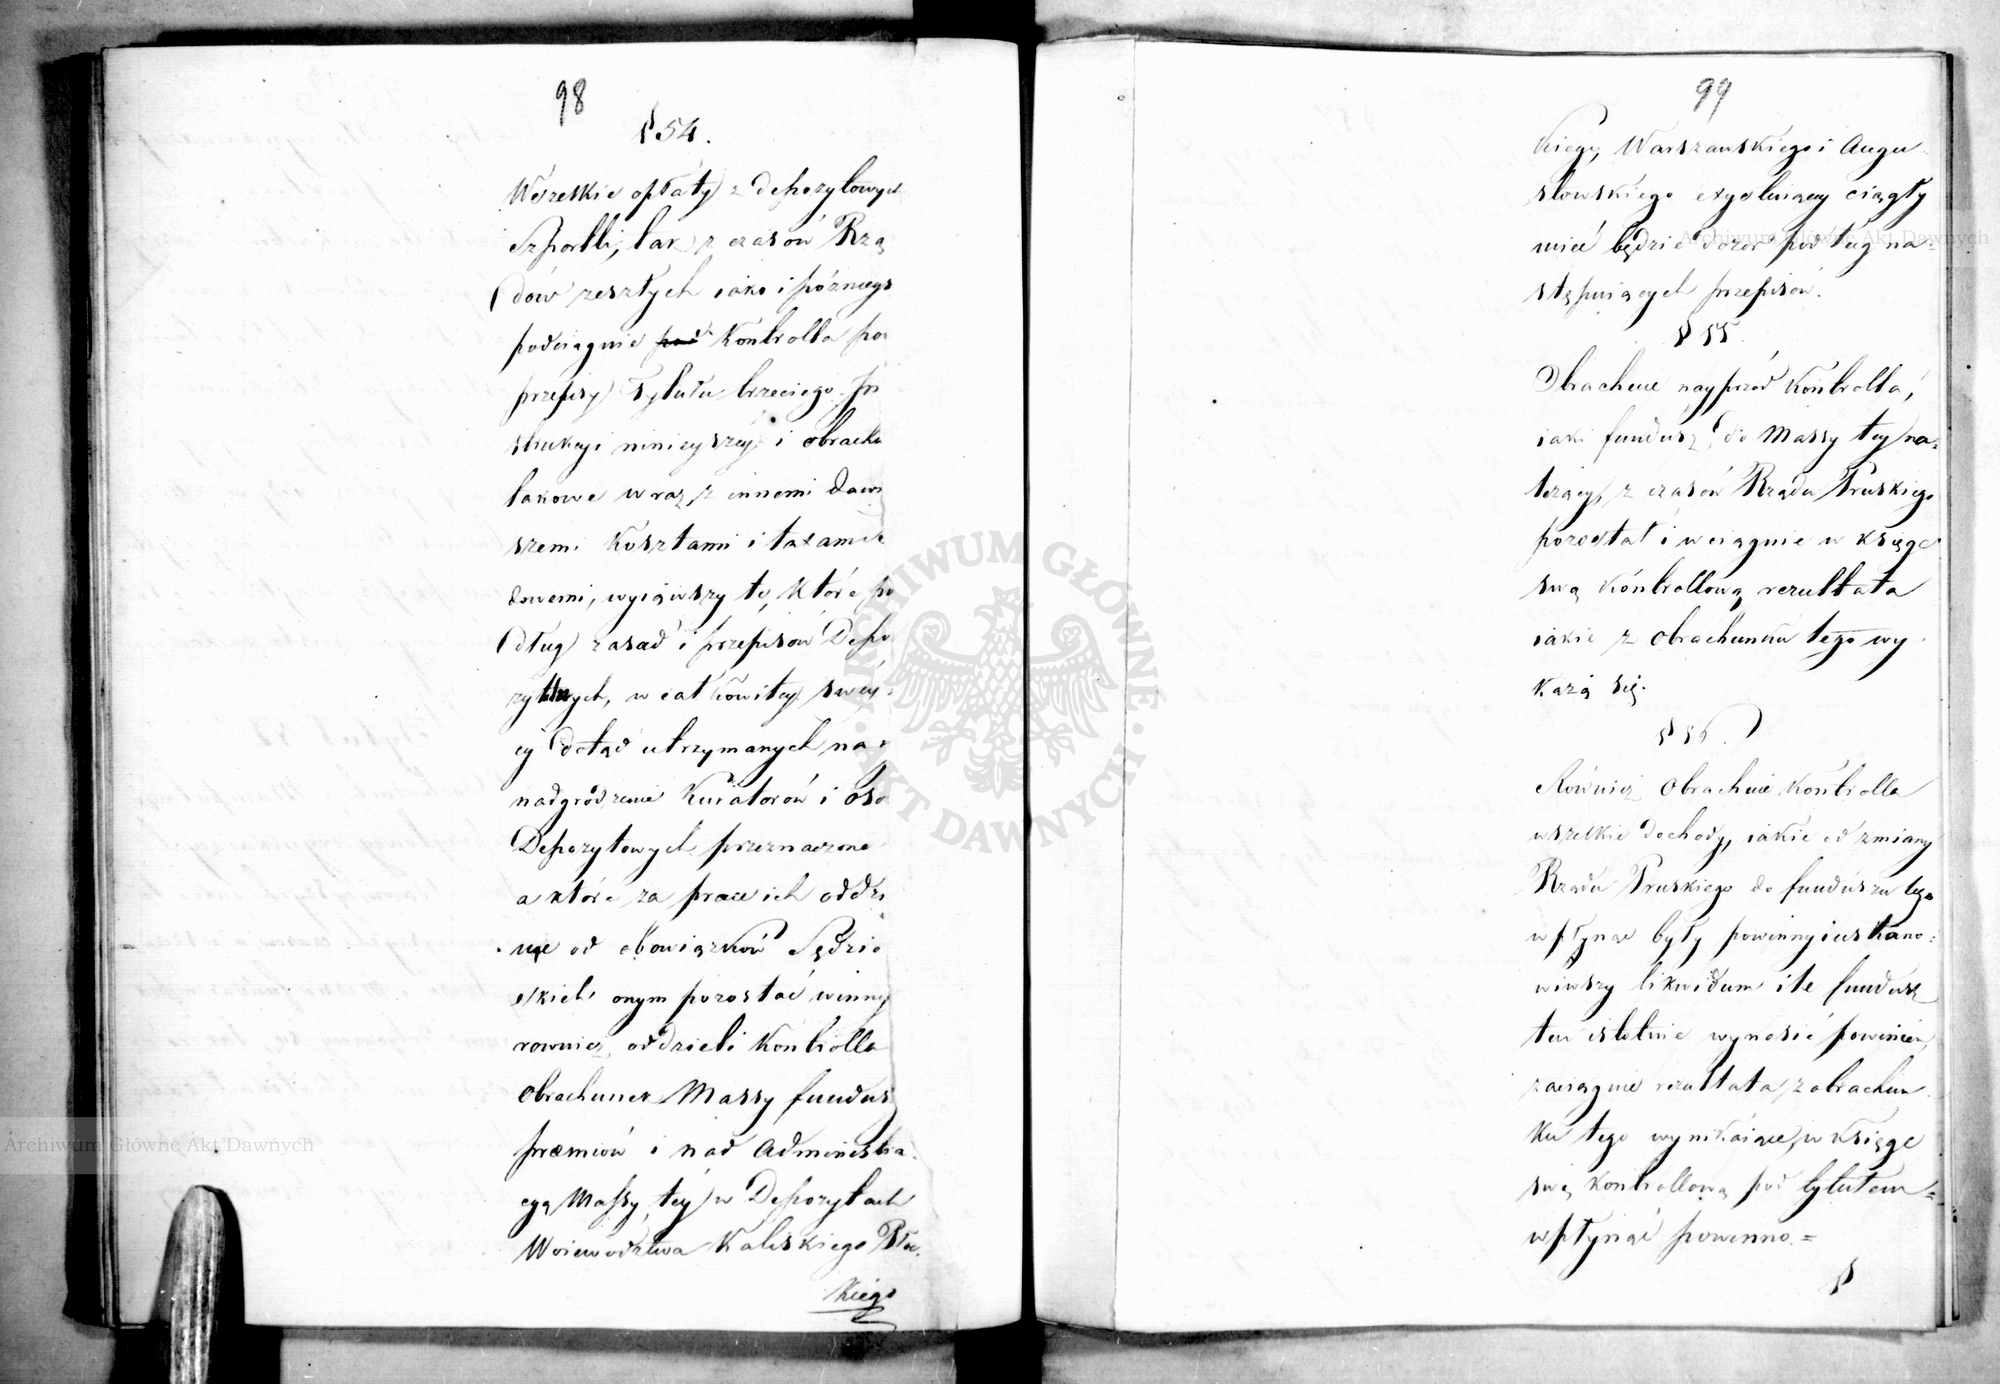 98
§ 54.
Wszelkie opłaty z depozytowych
Szportli, tak z czasów Rzą
dów zeszłych iako i późnieys
podciągnie pod Kontrolla po
przepisy Tytułu trzeciego In
strukcyi ninieyszey i obracho
takowe wraz z innemi daw
szemi kosztami i taxami
dowemi, wyiąwszy te, które po
dług zasad i przepisów Depo
zytowych, w całkowitey swey
cy dotąd utrzymanych na
nadgrodzenie Kuratorów i oso
Depozytowych przeznaczone
a które za prace ich oddzi
ne od obowiązków Sędzio
skich onym pozostać winny
rownież oddzieli Kontrolla
Obrachunek Massy fundus
præmiów i nad Administra
cyą Massy tey w Depozytach
Woiewództwa Kaliskiego Płoc
kiego
99
kiego, Warszawskiego i Augu
stowskiego exystuiącey ciągły
mieć będzie dozor podług na
stępuiących przepisów.
§ 55.
Obrachuie nayprzód Kontrolla,
iaki fundusz do Massy tey na=
leżący, z czasów Rządu Pruskiego
pozostał i wciągnie w księgę
swą kontrollową rezultata
iakie z obrachunku tego wy
każą się.
§ 56.
Również Obrachuie Kontrolla
wszelkie dochody, iakie od zmiany
Rządu Pruskiego do funduszu tego
wpłynąć były powinny i ustano=
wiwszy likwidum ile fundusz
ten istotnie wynosić powinien,
zaciągnie rezultata z obrachun
ku tego wynikaiące, w księgę
swą kontrollową pod tytułem=
wpłynąć powinno.=
§
Archiwum Główne Akt Dawnych
Archiwum Główne Akt Dawnych
ARCHIWUM GŁÓWNE
AKT DAWNYCH